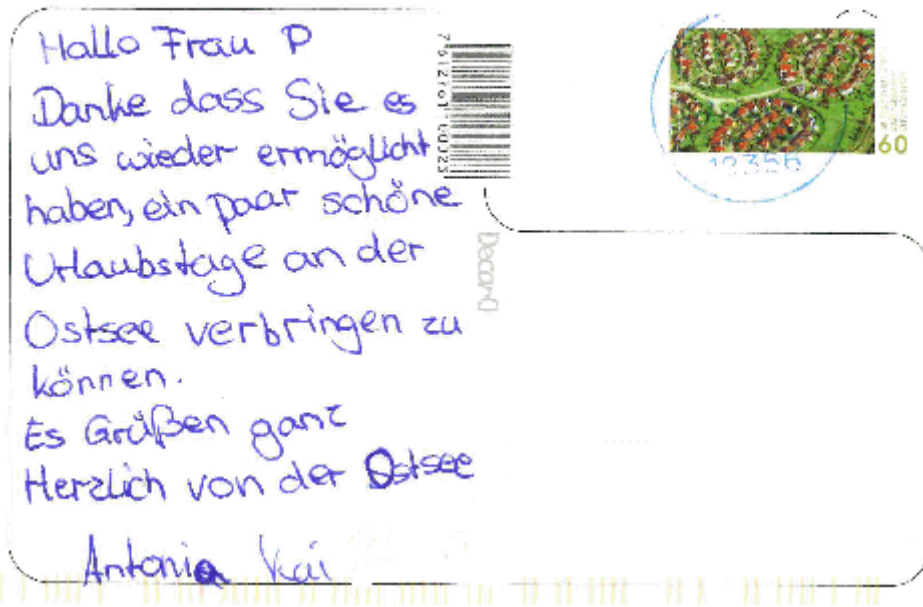 Hallo Frau P
Danke dass Sie es
uns wieder ermöglicht
haben, ein paar schöne
Urlaubstage an der
Ostsee verbringen zu
können.
Es Grüßen ganz
Herzlich von der Ostsee
Antonia Kai
60